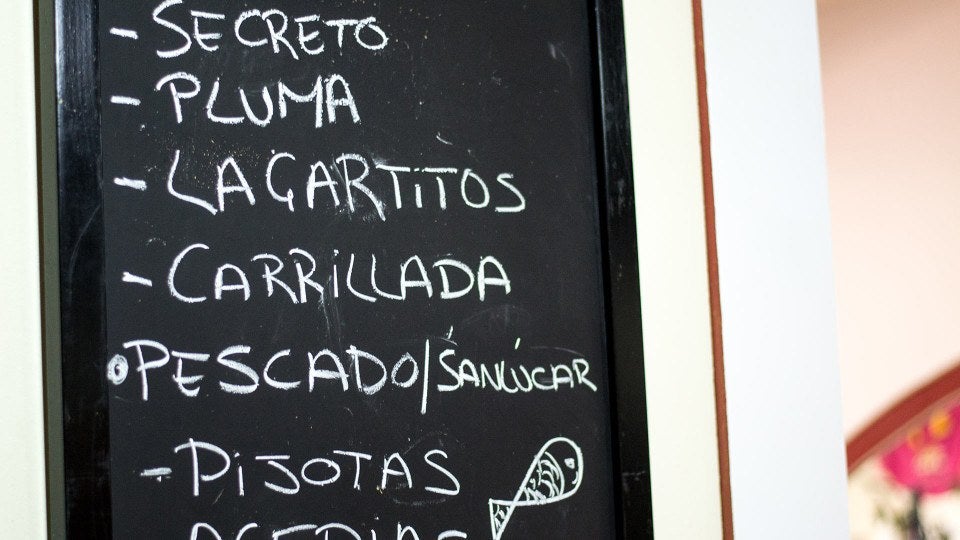 - SECRETO
- PLUMA
- LAGARTITOS
- CARRILLADA
PESCADO/SANLÚCAR
- PIJOTAS
ACEDIAS